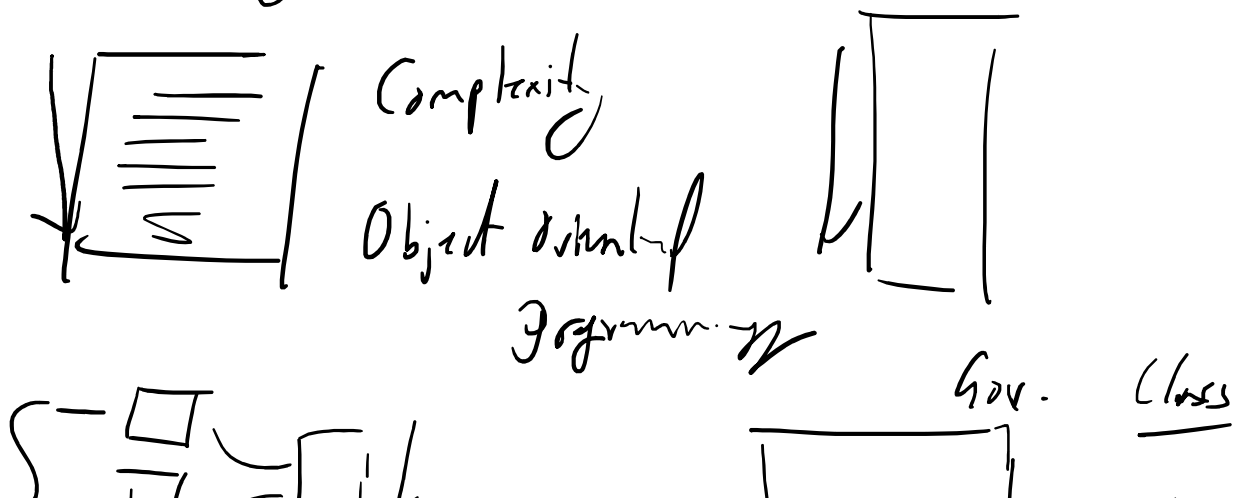 Complexity
Object oriented
Programming
Gov. Class